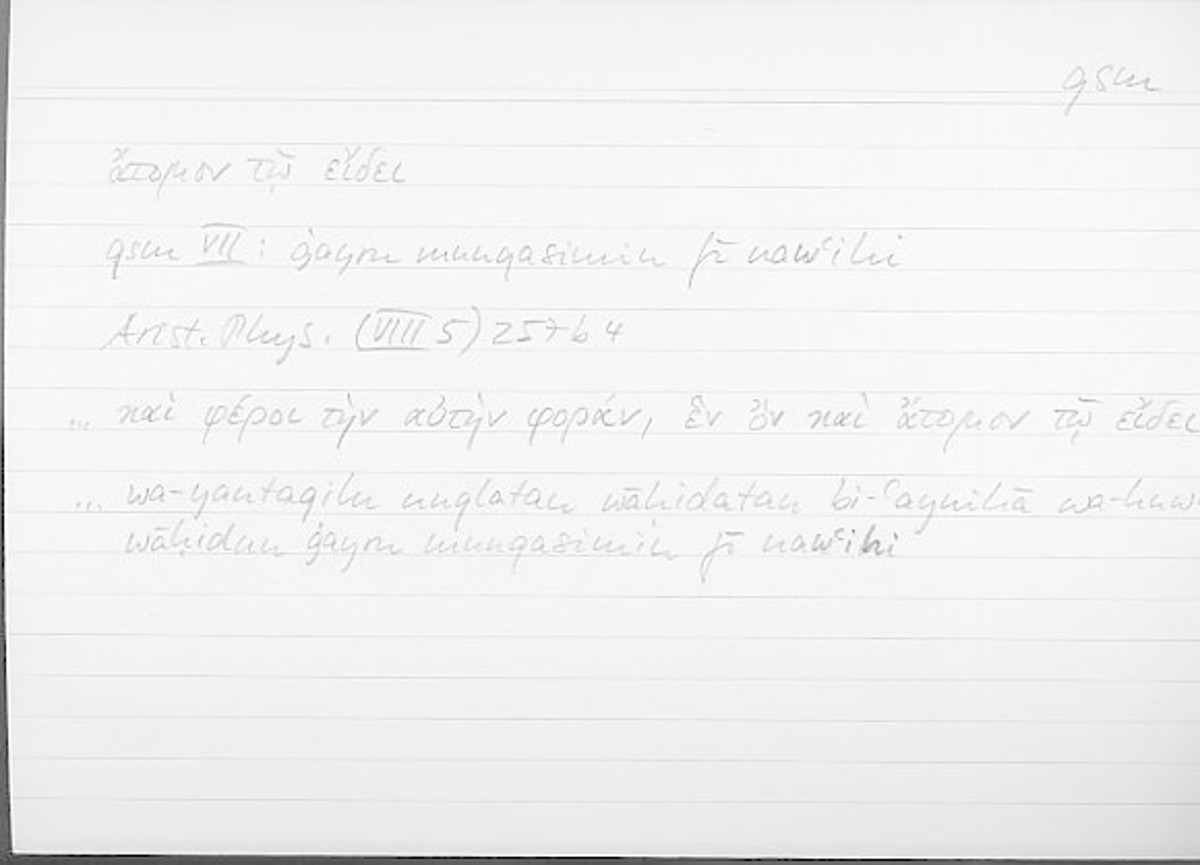 qsm
ἄτομον τῷ εἴδει
qsm VII: ġayru munqasimin fī nawʿihi
Arist. Phys. (VIII 5) 257 b 4
... καὶ φέροι τὴν αὐτὴν φοράν, ἓν ὂν καὶ ἄτομον τῷ εἴδει
... wa-yantaqilu nuqlatan wāḥidatan bi-ʿaynihā wa-huw
wāḥidun ġayru munqasimin fī nawʿihi